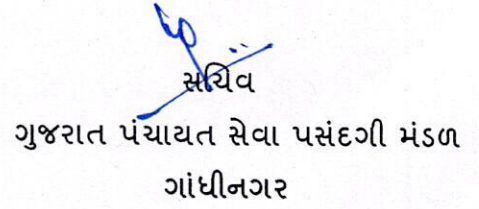 સચિવ
ગુજરાત પંચાયત સેવા પસંદગી મંડળ
ગાંધીનગર